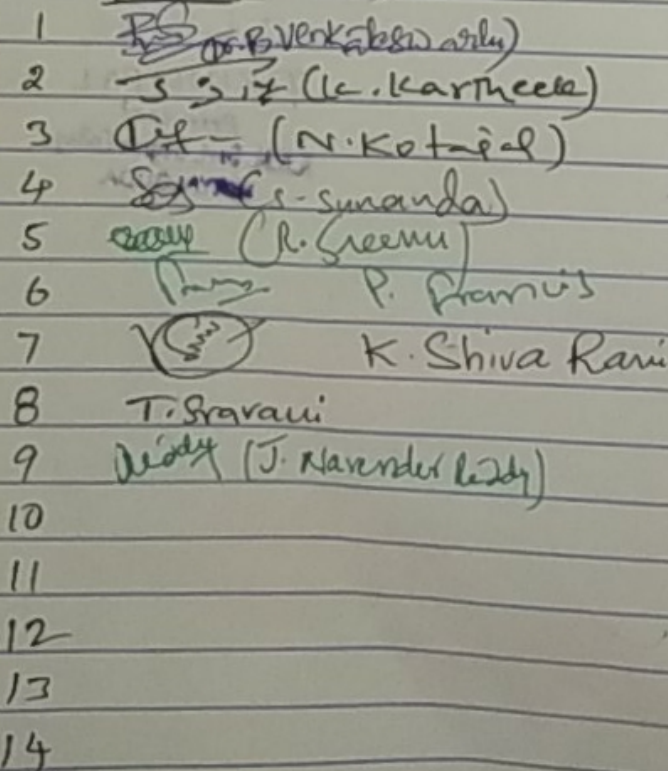 1 (Dr. B Venkateswarlu)
2 (K. Kartheek)
3 (N. Kotaiah)
4 (S. Sunanda)
5 (R. Sreenu)
6 P.
7 K. Shiva Rani
8 T. Sravani
9 Reddy (J. Narender Reddy)
10
11
12
13
14